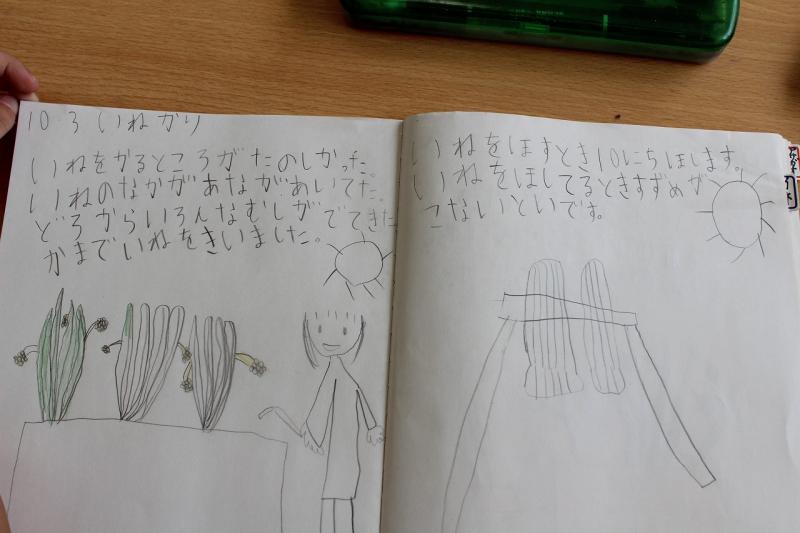 10.3 いねかり
いねをかるところがたのしかった。
いねのなかがあながあいてた。
どろからいろんなむしがでてきた
かまでいねをきいました。
いねをほすとき10にちほします。
いねをほしてるときすずめが
こないといいです。